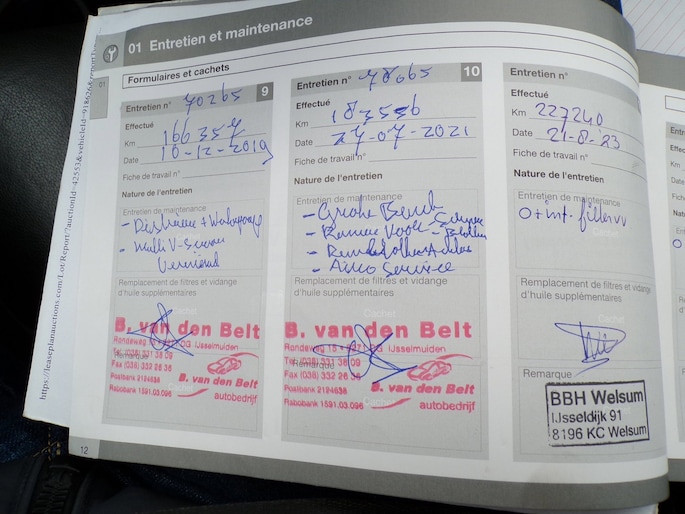 https://leaseplanauctions.com/Lot/Report/?auctionId=42553&vehicleId=918626&report
01 Entretien et maintenance
Formulaires et cachets
01
9
Entretien n° 70265
Effectué
Km 166357
Date 10-12-2019
Fiche de travail n°
Nature de l'entretien
Entretien de maintenance
- Distributie + Waterpomp
- Multi V-snaar
Vernieuwd
Remplacement de filtres et vidange
d'huile supplémentaires
Cachet
B. van den Belt
IJsselmuiden
Tel (038) 331 38 09
Fax (038) 332 26 36
Postbank 2124638
Rabobank 1591.03.096
B. van den Belt
autobedrijf
Remarque
10
Entretien n° 78065
Effectué
Km 183536
Date 27-07-2021
Fiche de travail n°
Nature de l'entretien
Entretien de maintenance
- Grote Beurt
- Remmen Voor - Schijven
- Blokken
- Remblokken Achter
- Airco Service
Remplacement de filtres et vidange
d'huile supplémentaires
Cachet
B. van den Belt
Rondeweg 15 IJsselmuiden
Tel (038) 331 38 09
Fax (038) 332 26 36
Postbank 2124638
Rabobank 1591.03.096
B. van den Belt
autobedrijf
Remarque
Cachet
Entretien n°
Effectué
Km 227240
Date 21-8-'23
Fiche de travail n°
Nature de l'entretien
Entretien de maintenance
O + int. filter vv
Remplacement de filtres et vidange
d'huile supplémentaires
Cachet
Remarque
BBH Welsum
IJsseldijk 91
8196 KC Welsum
12